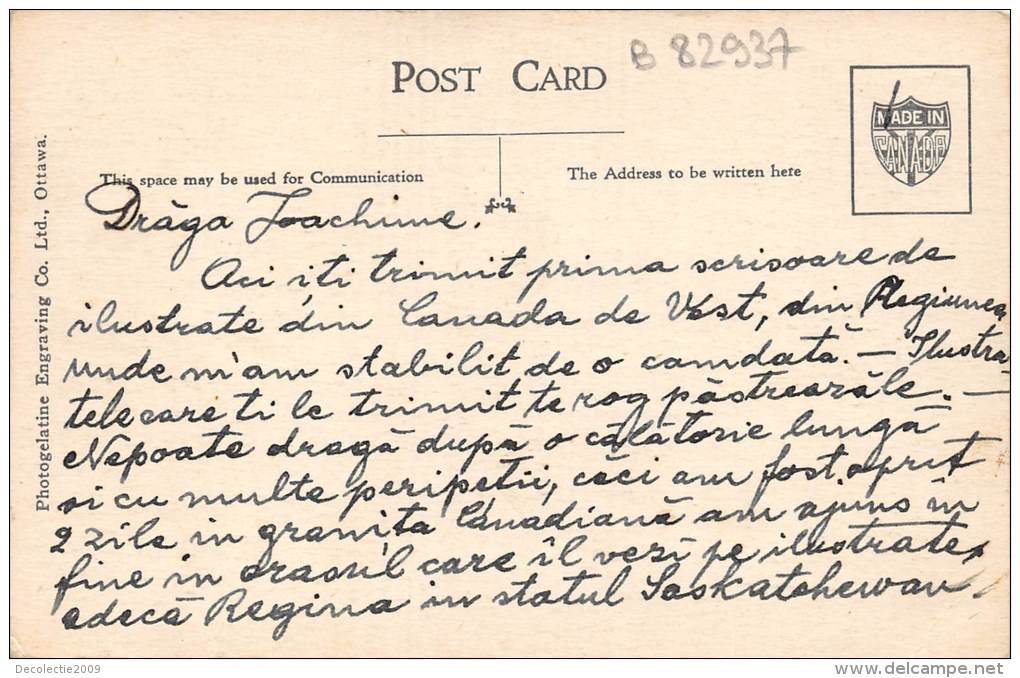 B 82937
POST CARD
MADE IN
CANADA
This space may be used for Communication
The Address to be written here
Photogelatine Engraving Co. Ltd., Ottawa.
Drăga Joachime.
Aci iți trimit prima scrisoare de
ilustrate din Canada de Vest, din Regiunea
unde m'am stabilit de o camdată. — Ilustra-
tele care ti le trimit te rog păstrează le. —
Nepoate dragă după o călătorie lungă
si cu multe peripeții, căci am fost oprit
2 zile in granița Canadiană am ajuns în
fine in orasul care îl vezi pe ilustrate,
adecă Regina in statul Saskatchewan.
Decolectie2009
delcampe.net